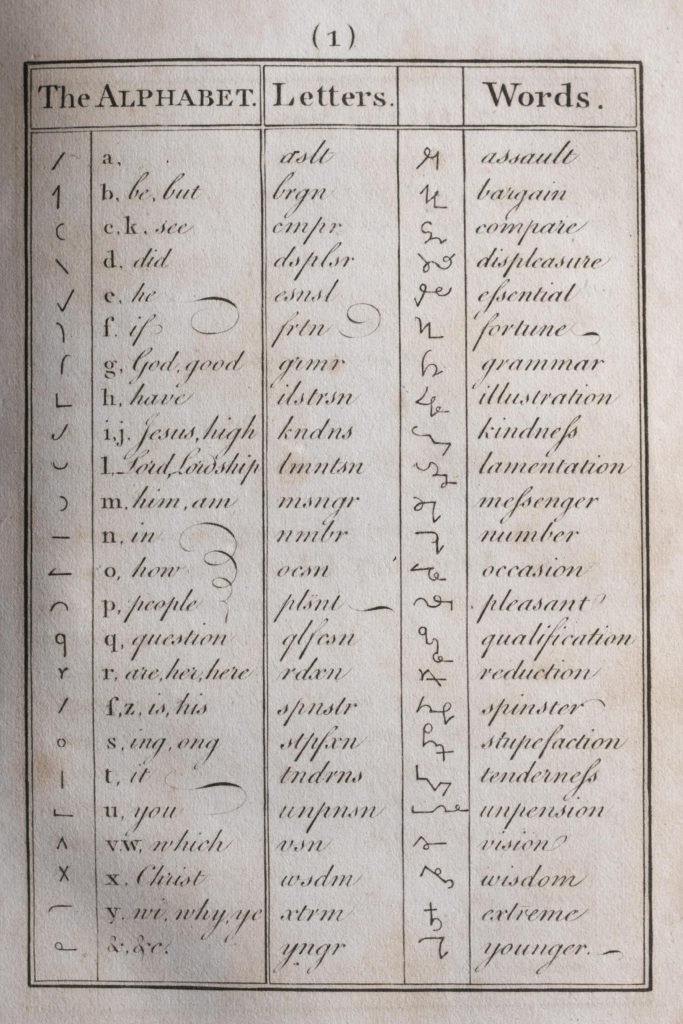 (1)
The ALPHABET. Letters. Words.
a, aslt assault
b, be, but brgn bargain
c, k, see cmpr compare
d, did dsplsr displeasure
e, he esnsl eſsential
f, if frtn fortune
g, God, good grmr grammar
h, have ilstrsn illustration
i, j, Jesus, high kndns kindneſs
l, Lord, Lordship lmntsn lamentation
m, him, am msngr meſsenger
n, in nmbr number
o, how ocsn occasion
p, people plsnt pleasant
q, question qlfcsn qualification
r, are, her, here rdxn reduction
ſ, z, is, his spnstr spinster
s, ing, ong stpfxn stupefaction
t, it tndrns tenderneſs
u, you unpnsn unpension
v.w, which vsn vision
x, Christ wsdm wisdom
y, wi, why, ye xtrm extreme
&, &c. yngr younger.